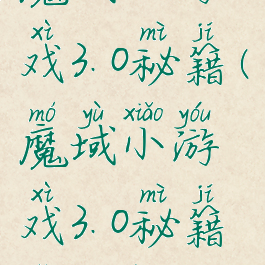 xì mì jí
戏3.0秘籍(
mó yù xiǎo yóu
魔域小游
xì mì jí
戏3.0秘籍